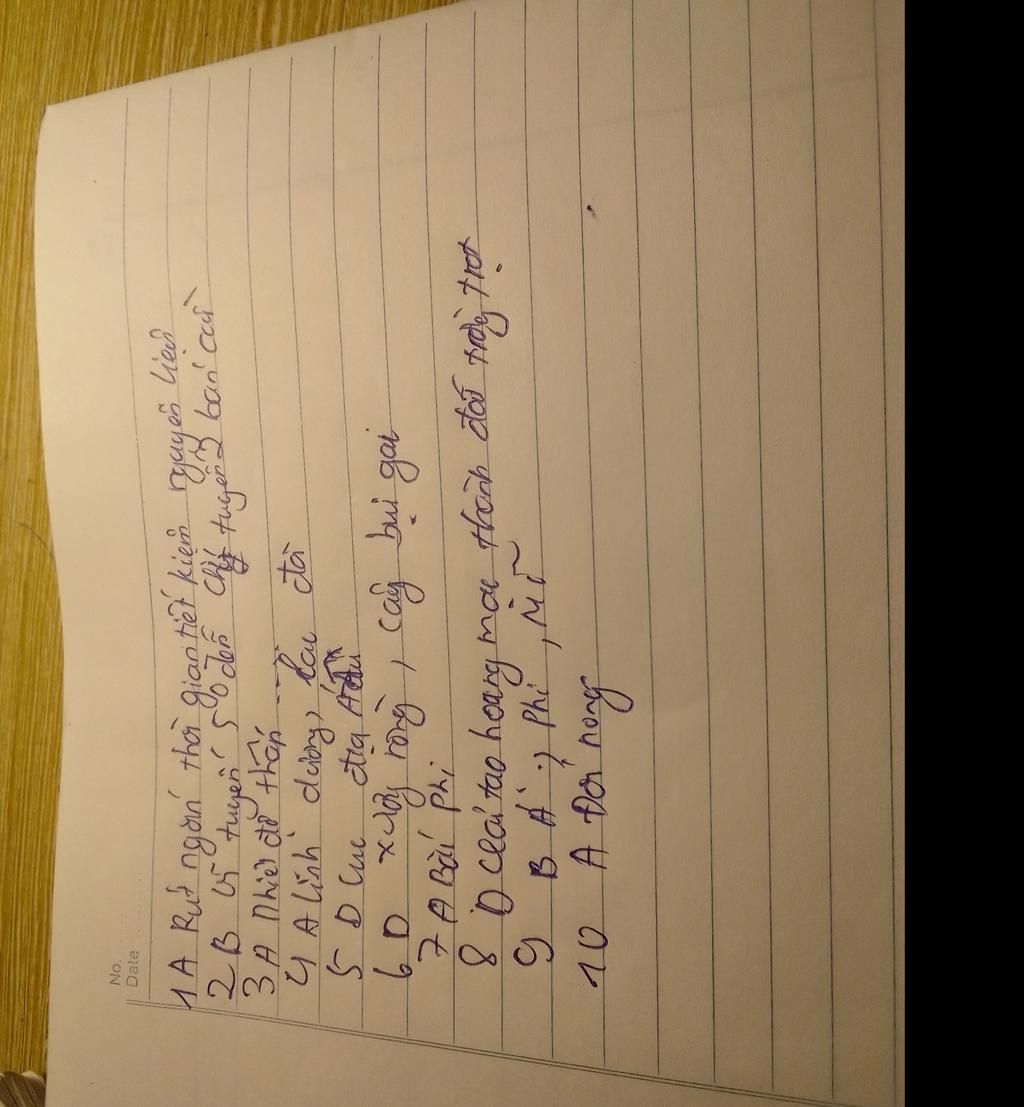 No.
Date
1A Rút ngắn thời gian tiết kiệm nguyên liệu
2 B Vĩ tuyến 5° đến chí tuyến ở 2 bán cầu
3 A Nhiệt độ thấp ...
4 A linh dương, lạc đà
5 D Cục địa
6 D xương rồng, cây bụi gai
7 A Bắc Phi
8 D Cải tạo hoang mạc thành đất trồng trọt
9 B Á ; Phi , Mĩ
10 A Đới nóng